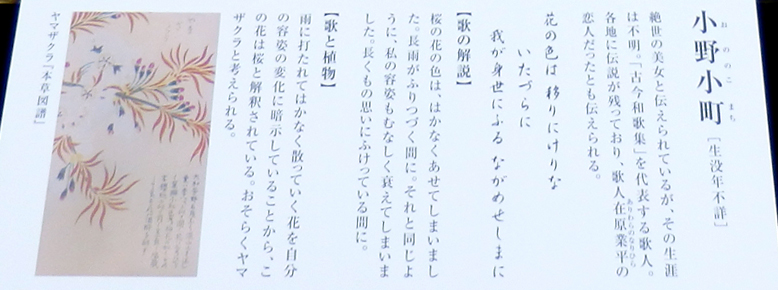 小野小町［生没年不詳］
おののこまち
絶世の美女と伝えられているが、その生涯
は不明。「古今和歌集」を代表する歌人。
各地に伝説が残っており、歌人在原業平の
ありわらのなりひら
恋人だったとも伝えられる。
花の色は 移りにけりな
いたづらに
我が身世にふる ながめせしまに
【歌の解説】
桜の花の色は、はかなくあせてしまいまし
た。長雨がふりつづく間に。それと同じよ
うに、私の容姿もむなしく衰えてしまいま
した。長くもの思いにふけっている間に。
【歌と植物】
雨に打たれてはかなく散っていく花を自分
の容姿の変化に暗示していることから、こ
の花は桜と解釈されている。おそらくヤマ
ザクラと考えられる。
ヤマザクラ『本草図譜』